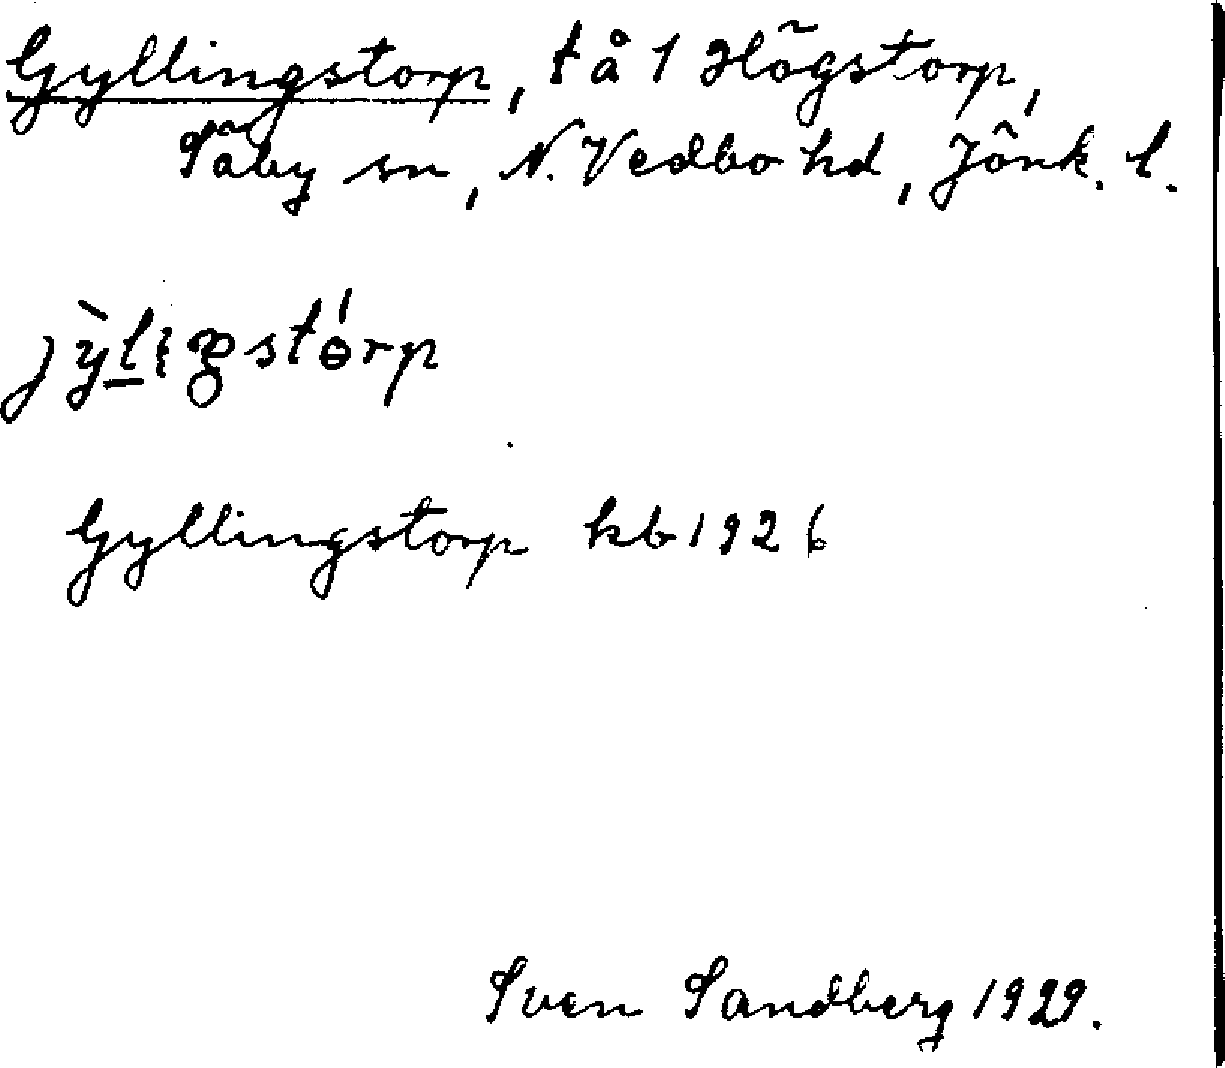 Gyllingstorp, tå 1 Högstorp,
Säby sn, N. Vedbo hd, Jönk. l.
Gyllingstorp kb 1926
Sven Sandberg 1929.